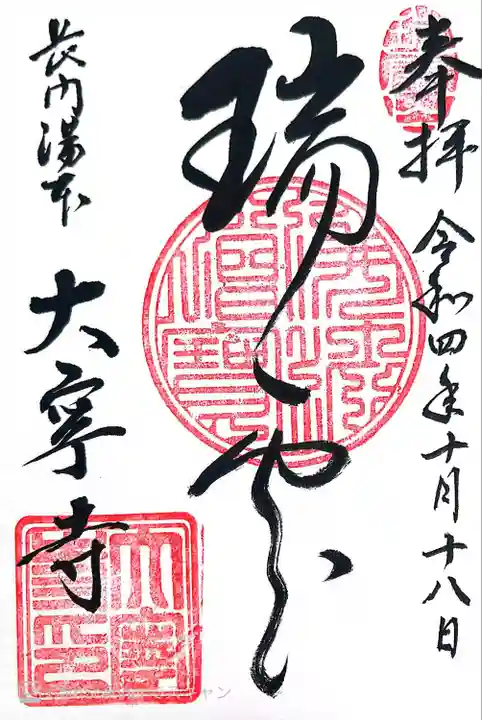 奉拝 令和四年十月十八日
瑞雲
長門湯本
大寧寺